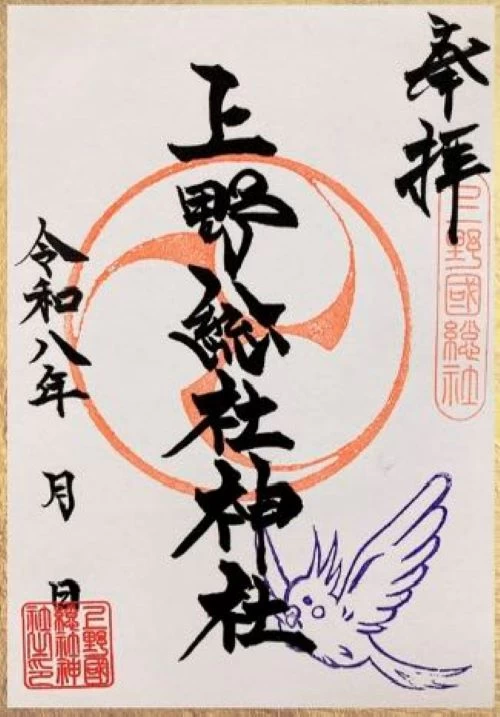 奉拝
上野國総社
上野総社神社
令和八年 月 日
上野國
総社神
社之印